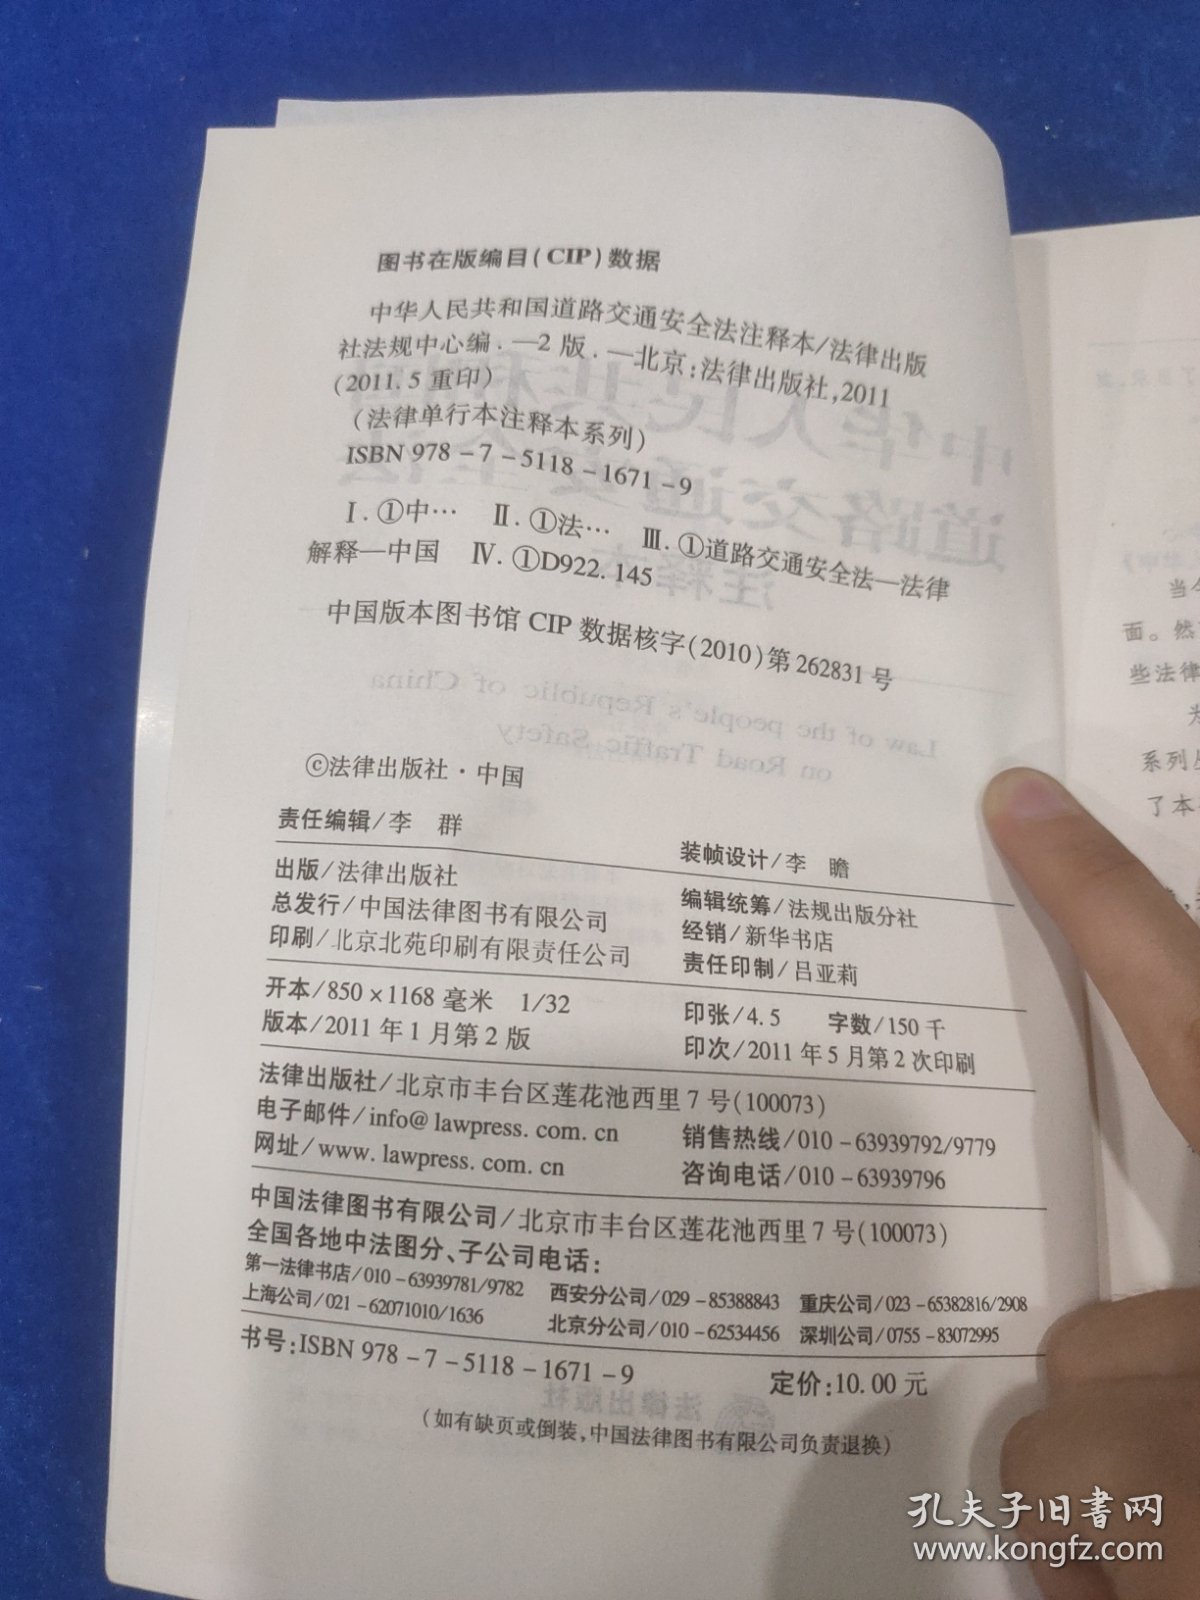 图书在版编目(CIP)数据
中华人民共和国道路交通安全法注释本/法律出版
社法规中心编.—2版.—北京:法律出版社,2011
(2011.5重印)
(法律单行本注释本系列)
ISBN 978-7-5118-1671-9
Ⅰ.①中… Ⅱ.①法… Ⅲ.①道路交通安全法—法律
解释—中国 Ⅳ.①D922.145
中国版本图书馆CIP数据核字(2010)第262831号
©法律出版社·中国
责任编辑/李 群 装帧设计/李 瞻
出版/法律出版社 编辑统筹/法规出版分社
总发行/中国法律图书有限公司 经销/新华书店
印刷/北京北苑印刷有限责任公司 责任印制/吕亚莉
开本/850×1168毫米 1/32 印张/4.5 字数/150千
版本/2011年1月第2版 印次/2011年5月第2次印刷
法律出版社/北京市丰台区莲花池西里7号(100073)
电子邮件/info@lawpress.com.cn 销售热线/010-63939792/9779
网址/www.lawpress.com.cn 咨询电话/010-63939796
中国法律图书有限公司/北京市丰台区莲花池西里7号(100073)
全国各地中法图分、子公司电话:
第一法律书店/010-63939781/9782 西安分公司/029-85388843 重庆公司/023-65382816/2908
上海公司/021-62071010/1636 北京分公司/010-62534456 深圳公司/0755-83072995
书号:ISBN 978-7-5118-1671-9 定价:10.00元
(如有缺页或倒装,中国法律图书有限公司负责退换)
中华人民共和国
道路交通安全法
注释本
Law of the people's Republic of China
on Road Traffic Safety
法律出版社
当今
面。然
些法律
为
系列
了本
孔夫子旧书网
www.kongfz.com